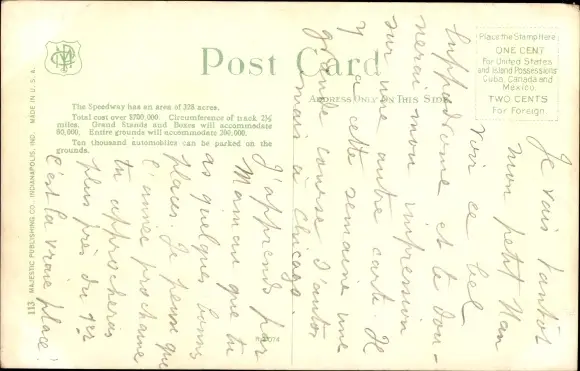 Post Card
ADDRESS ONLY ON THIS SIDE
Place the Stamp Here
ONE CENT
For United States
and Island Possessions
Cuba, Canada and
Mexico.
TWO CENTS
For Foreign.
The Speedway has an area of 328 acres.
Total cost over $700,000. Circumference of track 2½
miles. Grand Stands and Boxes will accommodate
60,000. Entire grounds will accommodate 200,000.
Ten thousand automobiles can be parked on the
grounds.
113 MAJESTIC PUBLISHING CO., INDIANAPOLIS, IND. MADE IN U. S. A.
Je vais tantôt
mon petit
voir ce bel
hippodrome et te don-
nerai mon impression
sur une autre carte. Il
y a cette semaine une
grande course d'autos
mais à Chicago.
J'apprends par
Maman que tu
as quelques bonnes
places. Je pense que
l'année prochaine
tu approcheras
plus près du 1er
C'est la vraie place!